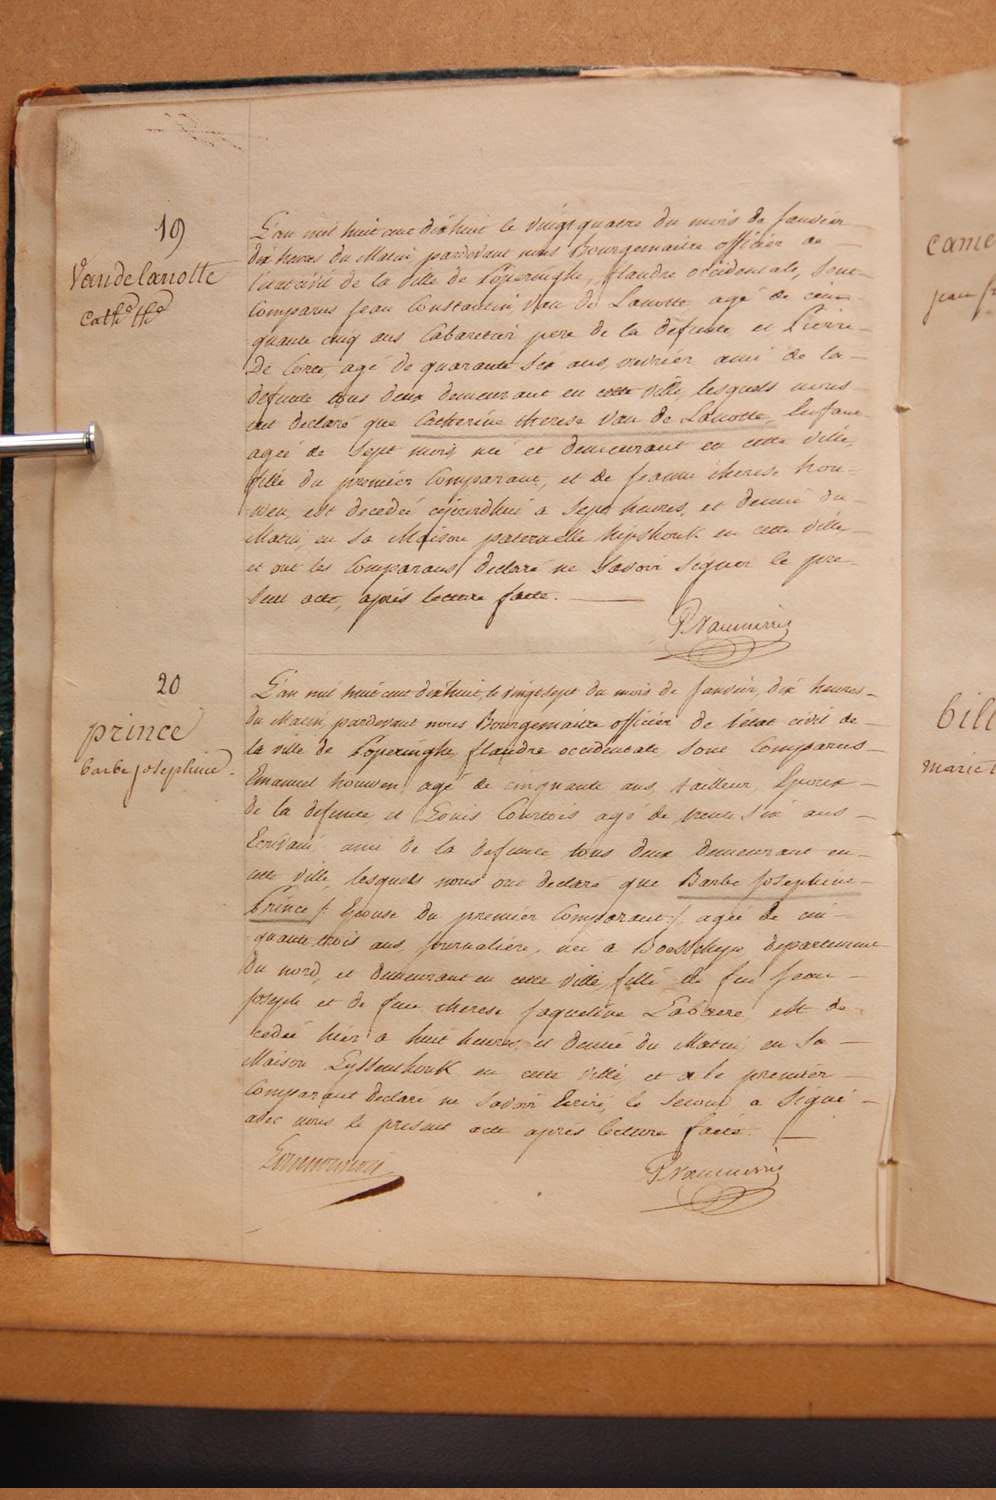 19
Van de Lanotte
Cathe The
L'an mil huit cent dix huit le vingt quatre du mois de Janvier
dix heures du Matin pardevant nous Bourgemaitre officier de
l'état civil de la ville de Poperinghe, flandre occidentale, sont
Comparus Jean Constantin Van de Lanotte agé de cin-
quante cinq ans Cabaretier pere de la defunte et Pierre
De Corte, agé de quarante six ans, ouvrier ami de la
defunte tous deux demeurant en cette ville, lesquels nous
ont declaré que Catherine therese Van de Lanotte, Enfant
agée de sept mois, née et demeurant en cette ville,
fille du premier Comparant, et de Jeanne therese hou-
wen, est decedée aujourdhui a sept heures, et demie du
Matin, en sa Maison paternelle en cette ville
et ont les Comparans declaré ne Savoir Signer le pre-
sent acte, après lecture faite.
20
prince
barbe josephine
L'an mil huit cent dix huit, le vingt sept du mois de Janvier, dix heures
du Matin, pardevant nous Bourgemaitre officier de l'état civil de
la ville de Poperinghe, flandre occidentale sont Comparus
Emanuel houwen agé de cinquante ans, tailleur, Epoux
de la defunte, et Louis Courtois agé de trente six ans
Ecrivain ami de la defunte, tous deux demeurant en
cette ville, lesquels nous ont declaré que Barbe Josephine
Prince /: Epouse du premier Comparant :/ agée de cin-
quante trois ans, journalière, née a departement
du nord, et demeurant en cette ville, fille de feu Jean
Joseph et de feue therese Jaqueline est de-
cedée hier a huit heures, et demie du Matin, en Sa
Maison en cette ville, et a le premier
Comparant declaré ne Savoir Ecrire, le Second a Signé
avec nous le présent acte après lecture faite.